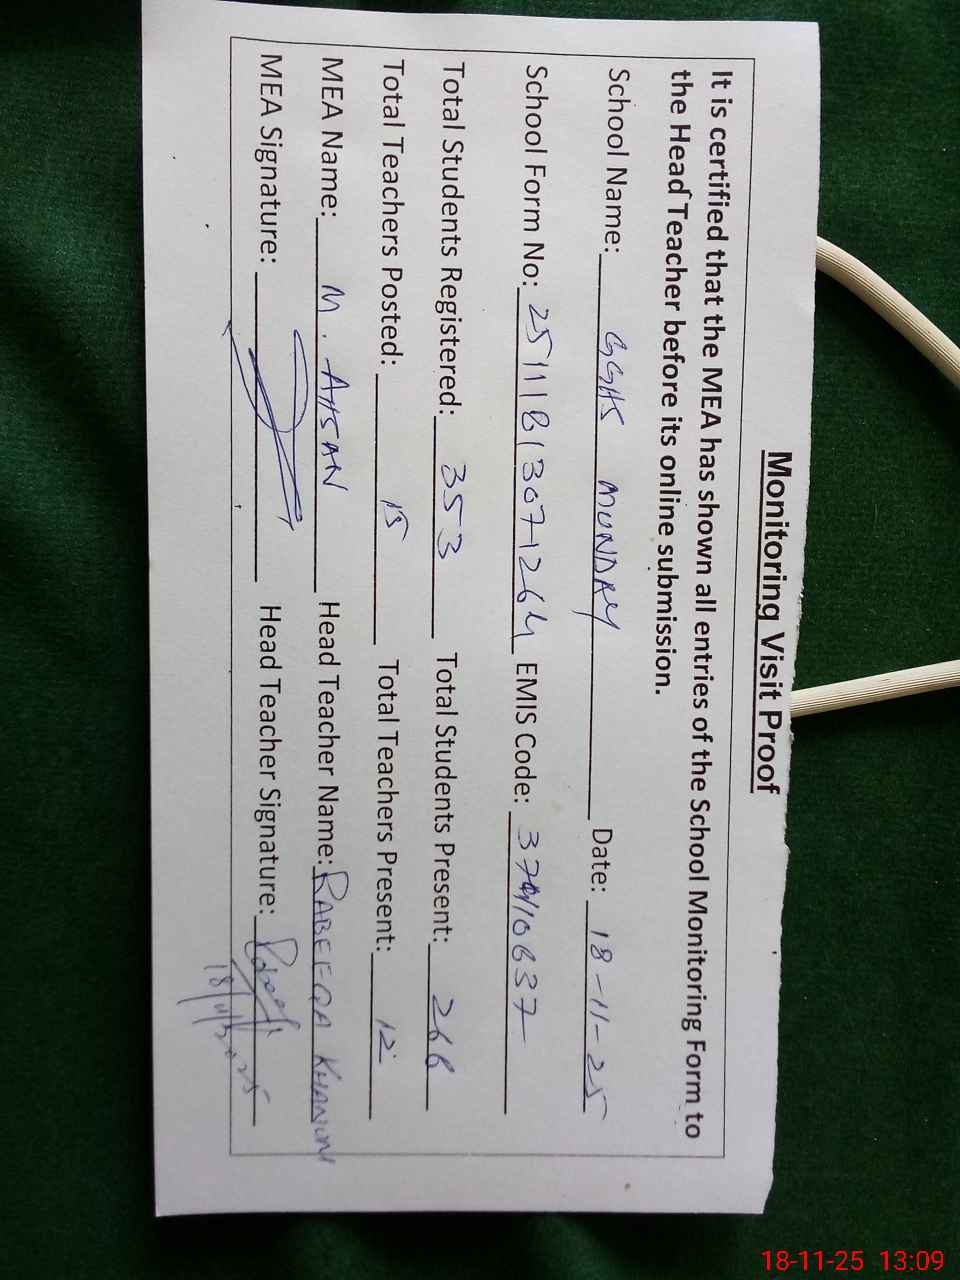 Monitoring Visit Proof
It is certified that the MEA has shown all entries of the School Monitoring Form to
the Head Teacher before its online submission.
School Name: GGHS MUNDAY Date: 18-11-25
School Form No: EMIS Code:
Total Students Registered: 353 Total Students Present: 266
Total Teachers Posted: 15 Total Teachers Present: 12
MEA Name: M. AHSAN Head Teacher Name: RABEEQA KHANUM
MEA Signature: Head Teacher Signature:
18/11/2025
18-11-25 13:09